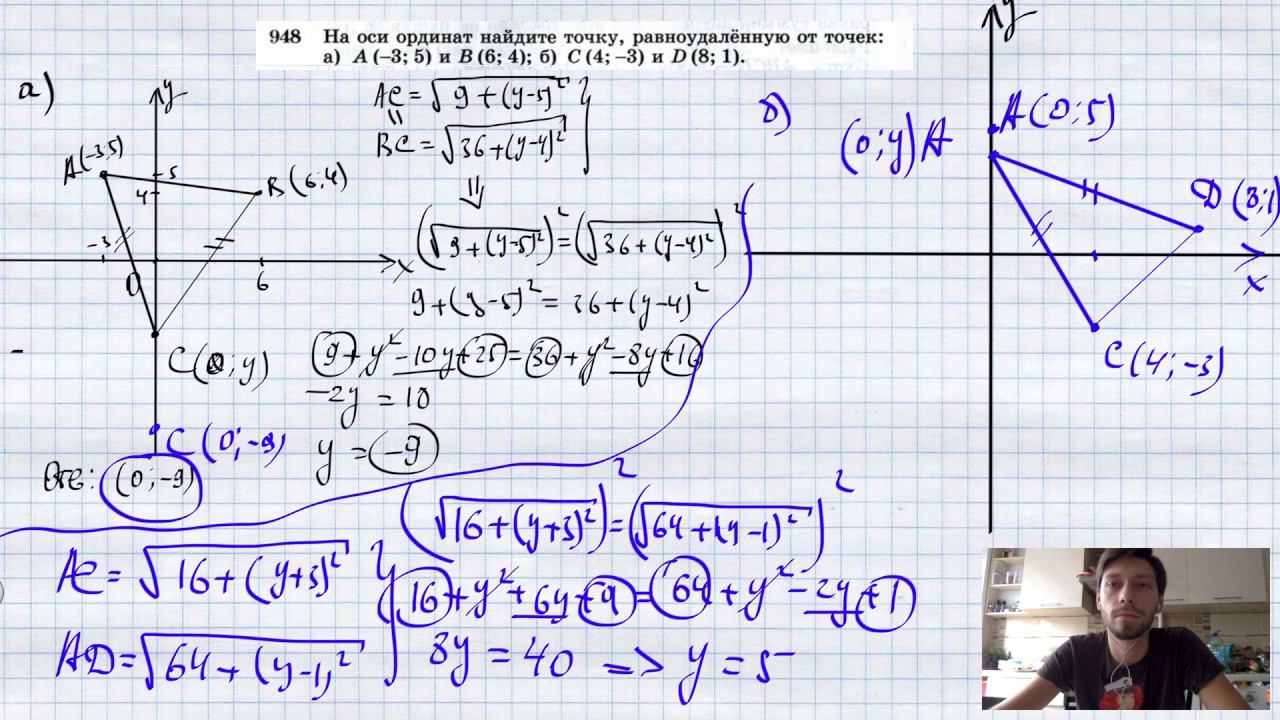 948 На оси ординат найдите точку, равноудалённую от точек:
а) A (–3; 5) и B (6; 4); б) C (4; –3) и D (8; 1).
а)
y
A(-3;5)
5
4
B(6;4)
-3
0
6
x
C(0;y)
C(0;-9)
Отв: (0;-9)
AC = √(9+(y-5)²)
=
BC = √(36+(y-4)²)
⇓
(√(9+(y-5)²))² = (√(36+(y-4)²))²
9+(y-5)² = 36+(y-4)²
9+y²-10y+25 = 36+y²-8y+16
-2y = 18
y = -9
б)
y
A(0;5)
(0;y)A
D(8;1)
x
C(4;-3)
AC = √(16+(y+3)²)
AD = √(64+(y-1)²)
(√(16+(y+3)²))² = (√(64+(y-1)²))²
16+y²+6y+9 = 64+y²-2y+1
8y = 40 => y = 5